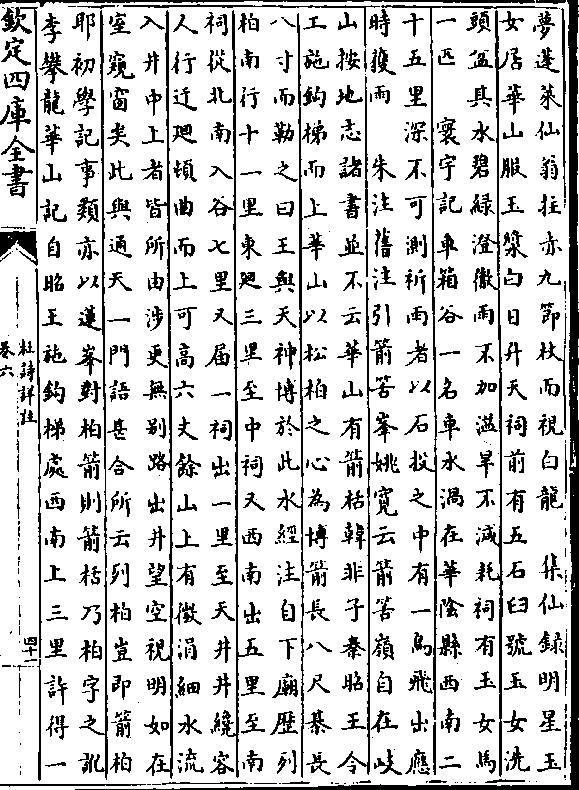 夢蓬萊仙翁拄赤九節杖而視白龍　集仙録明星玉
女居華山服玉漿白日升天祠前有五石臼號玉女洗
頭盆其水碧緑澄徹雨不加溢旱不減耗祠有玉女馬
一匹　寰宇記車箱谷一名車水渦在華陰縣西南二
十五里深不可測祈雨者以石投之中有一鳥飛出應
時獲雨　朱注舊注引箭筈峯姚寛云箭筈嶺自在岐
山按地志諸書並不云華山有箭栝韓非子秦昭王令
工施鉤梯而上華山以松柏之心為博箭長八尺棊長
八寸而勒之曰王與天神博於此水經注自下廟歴列
柏南行十一里東廻三里至中祠又西南出五里至南
祠從北南入谷七里又届一祠出一里至天井井纔容
人行迂廻頓曲而上可高六丈餘山上有微涓細水流
入井中上者皆所由涉更無别路出井望空視明如在
室窺窗矣此與通天一門語甚合所云列柏豈即箭柏
耶初學記事類亦以蓮峯對柏箭則箭栝乃柏字之訛
李攀龍華山記自昭王施鉤梯處西南上三里許得一
欽定四庫全書
杜詩詳註
卷六
四十二